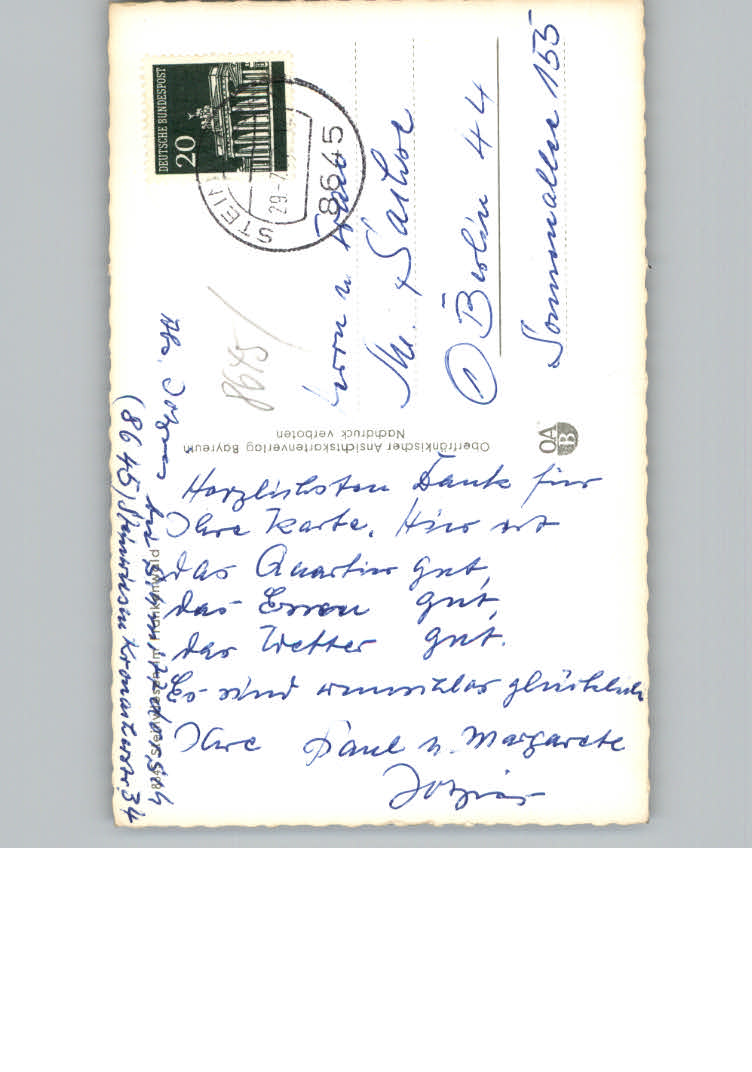 DEUTSCHE BUNDESPOST
20
8645
Herrn u. Frau
Th. Sachse
① Berlin 44
Sonnenallee 155
8645/
Oberfränkischer Ansichtskartenverlag Bayreuth
Nachdruck verboten
OA
B
Herzlichsten Dank für
Ihre Karte. Hier ist
das Quartier gut,
das Essen gut,
das Wetter gut.
Es sind wunschlos glücklich
Ihre Paul u. Margarete
Abs.
(8645) Steinwiesen Kronacherstr 34